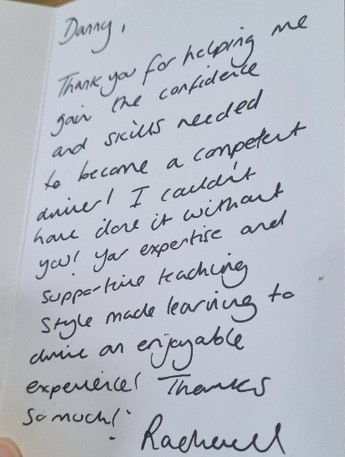 Danny,
Thank you for helping me
gain the confidence
and skills needed
to become a competent
driver! I couldn't
have done it without
you! Your expertise and
supportive teaching
style made learning to
drive an enjoyable
experience! Thanks
so much!